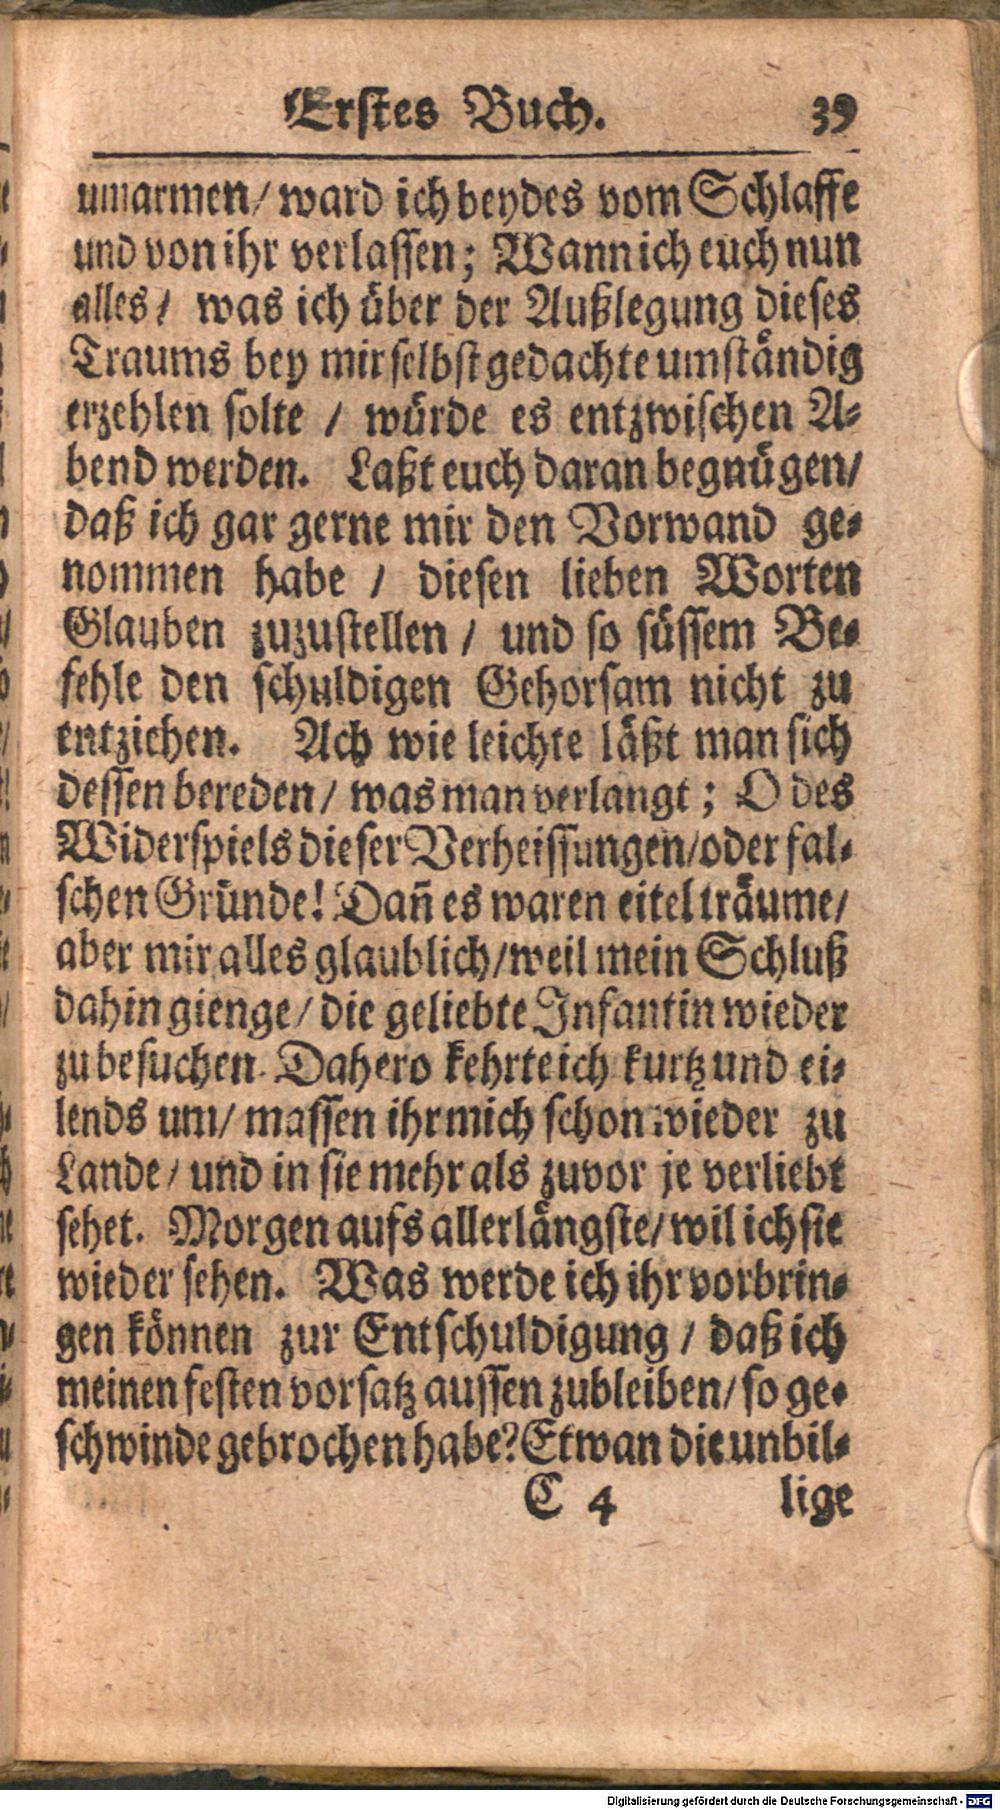 Erstes Buch. 39
umarmen/ ward ich beydes vom Schlaffe
und von ihr verlassen; Wann ich euch nun
alles/ was ich über der Außlegung dieses
Traums bey mir selbst gedachte umständig
erzehlen solte / würde es entzwischen A-
bend werden. Laßt euch daran begnügen/
daß ich gar gerne mir den Vorwand ge-
nommen habe / diesen lieben Worten
Glauben zuzustellen / und so süssem Be-
fehle den schuldigen Gehorsam nicht zu
entziehen. Ach wie leichte läßt man sich
dessen bereden/ was man verlangt; O des
Widerspiels dieser Verheissungen/oder fal-
schen Gründe! Dañ es waren eitel träume/
aber mir alles glaublich/weil mein Schluß
dahin gienge/ die geliebte Infantin wieder
zu besuchen. Dahero kehrte ich kurtz und ei-
lends um/ massen ihr mich schon wieder zu
Lande/ und in sie mehr als zuvor je verliebt
sehet. Morgen aufs allerlängste/ wil ich sie
wieder sehen. Was werde ich ihr vorbrin-
gen können zur Entschuldigung / daß ich
meinen festen vorsatz aussen zubleiben/ so ge-
schwinde gebrochen habe? Etwan die unbil-
C 4 lige
Digitalisierung gefördert durch die Deutsche Forschungsgemeinschaft - DFG